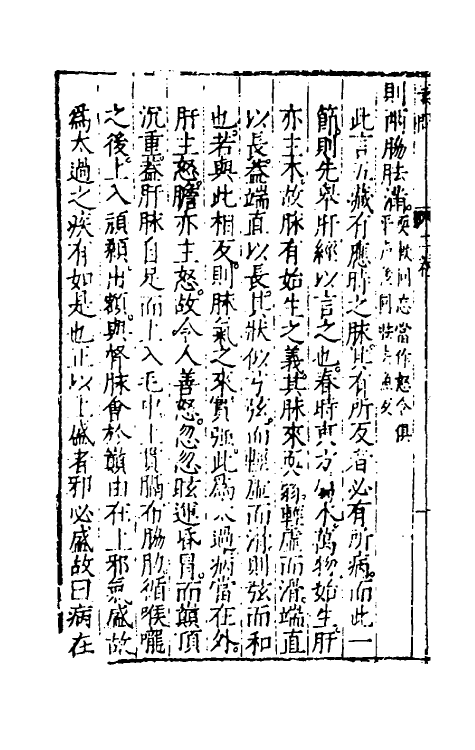 則兩脇胠滿
此言五藏有應時之脉其有所反者必有所病而此一
節則先舉肝經以言之也春時東方木萬物始生肝
亦主木故脉有始生之義其脉來耎弱輕虛而滑端直
以長蓋端直以長其狀似弓弦而輕虛而滑則弦而和
也若與此相反則脉氣之來實强此爲太過病當在外
肝主怒膽亦主怒故令人善怒忽忽眩運昏冒而顛頂
沉重蓋肝脉自足而上入毛中上貫膈布脇肋循喉嚨
之後上入頏顙出額與督脉會於巔由在上邪氣盛故
爲太過之疾有如是也正以上盛者邪必盛故曰病在